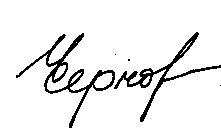 Чернов